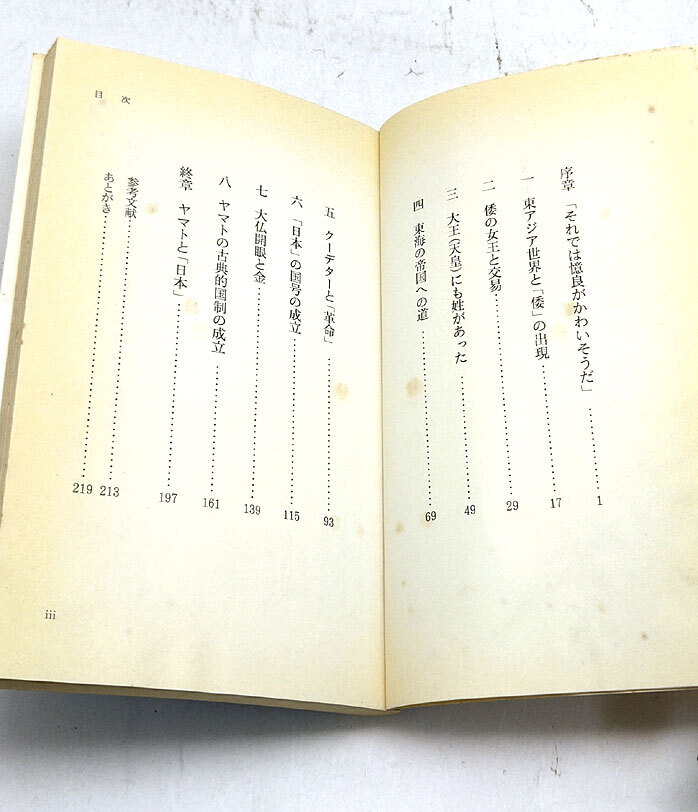 序章 「それでは憶良がかわいそうだ」……1
一 東アジア世界と「倭」の出現……17
二 倭の女王と交易……29
三 大王(天皇)にも姓があった……49
四 東海の帝国への道……69
目次
五 クーデターと「革命」……93
六 「日本」の国号の成立……115
七 大仏開眼と金……139
八 ヤマトの古典的国制の成立……161
終章 ヤマトと「日本」……197
参考文献……213
あとがき……219
iii